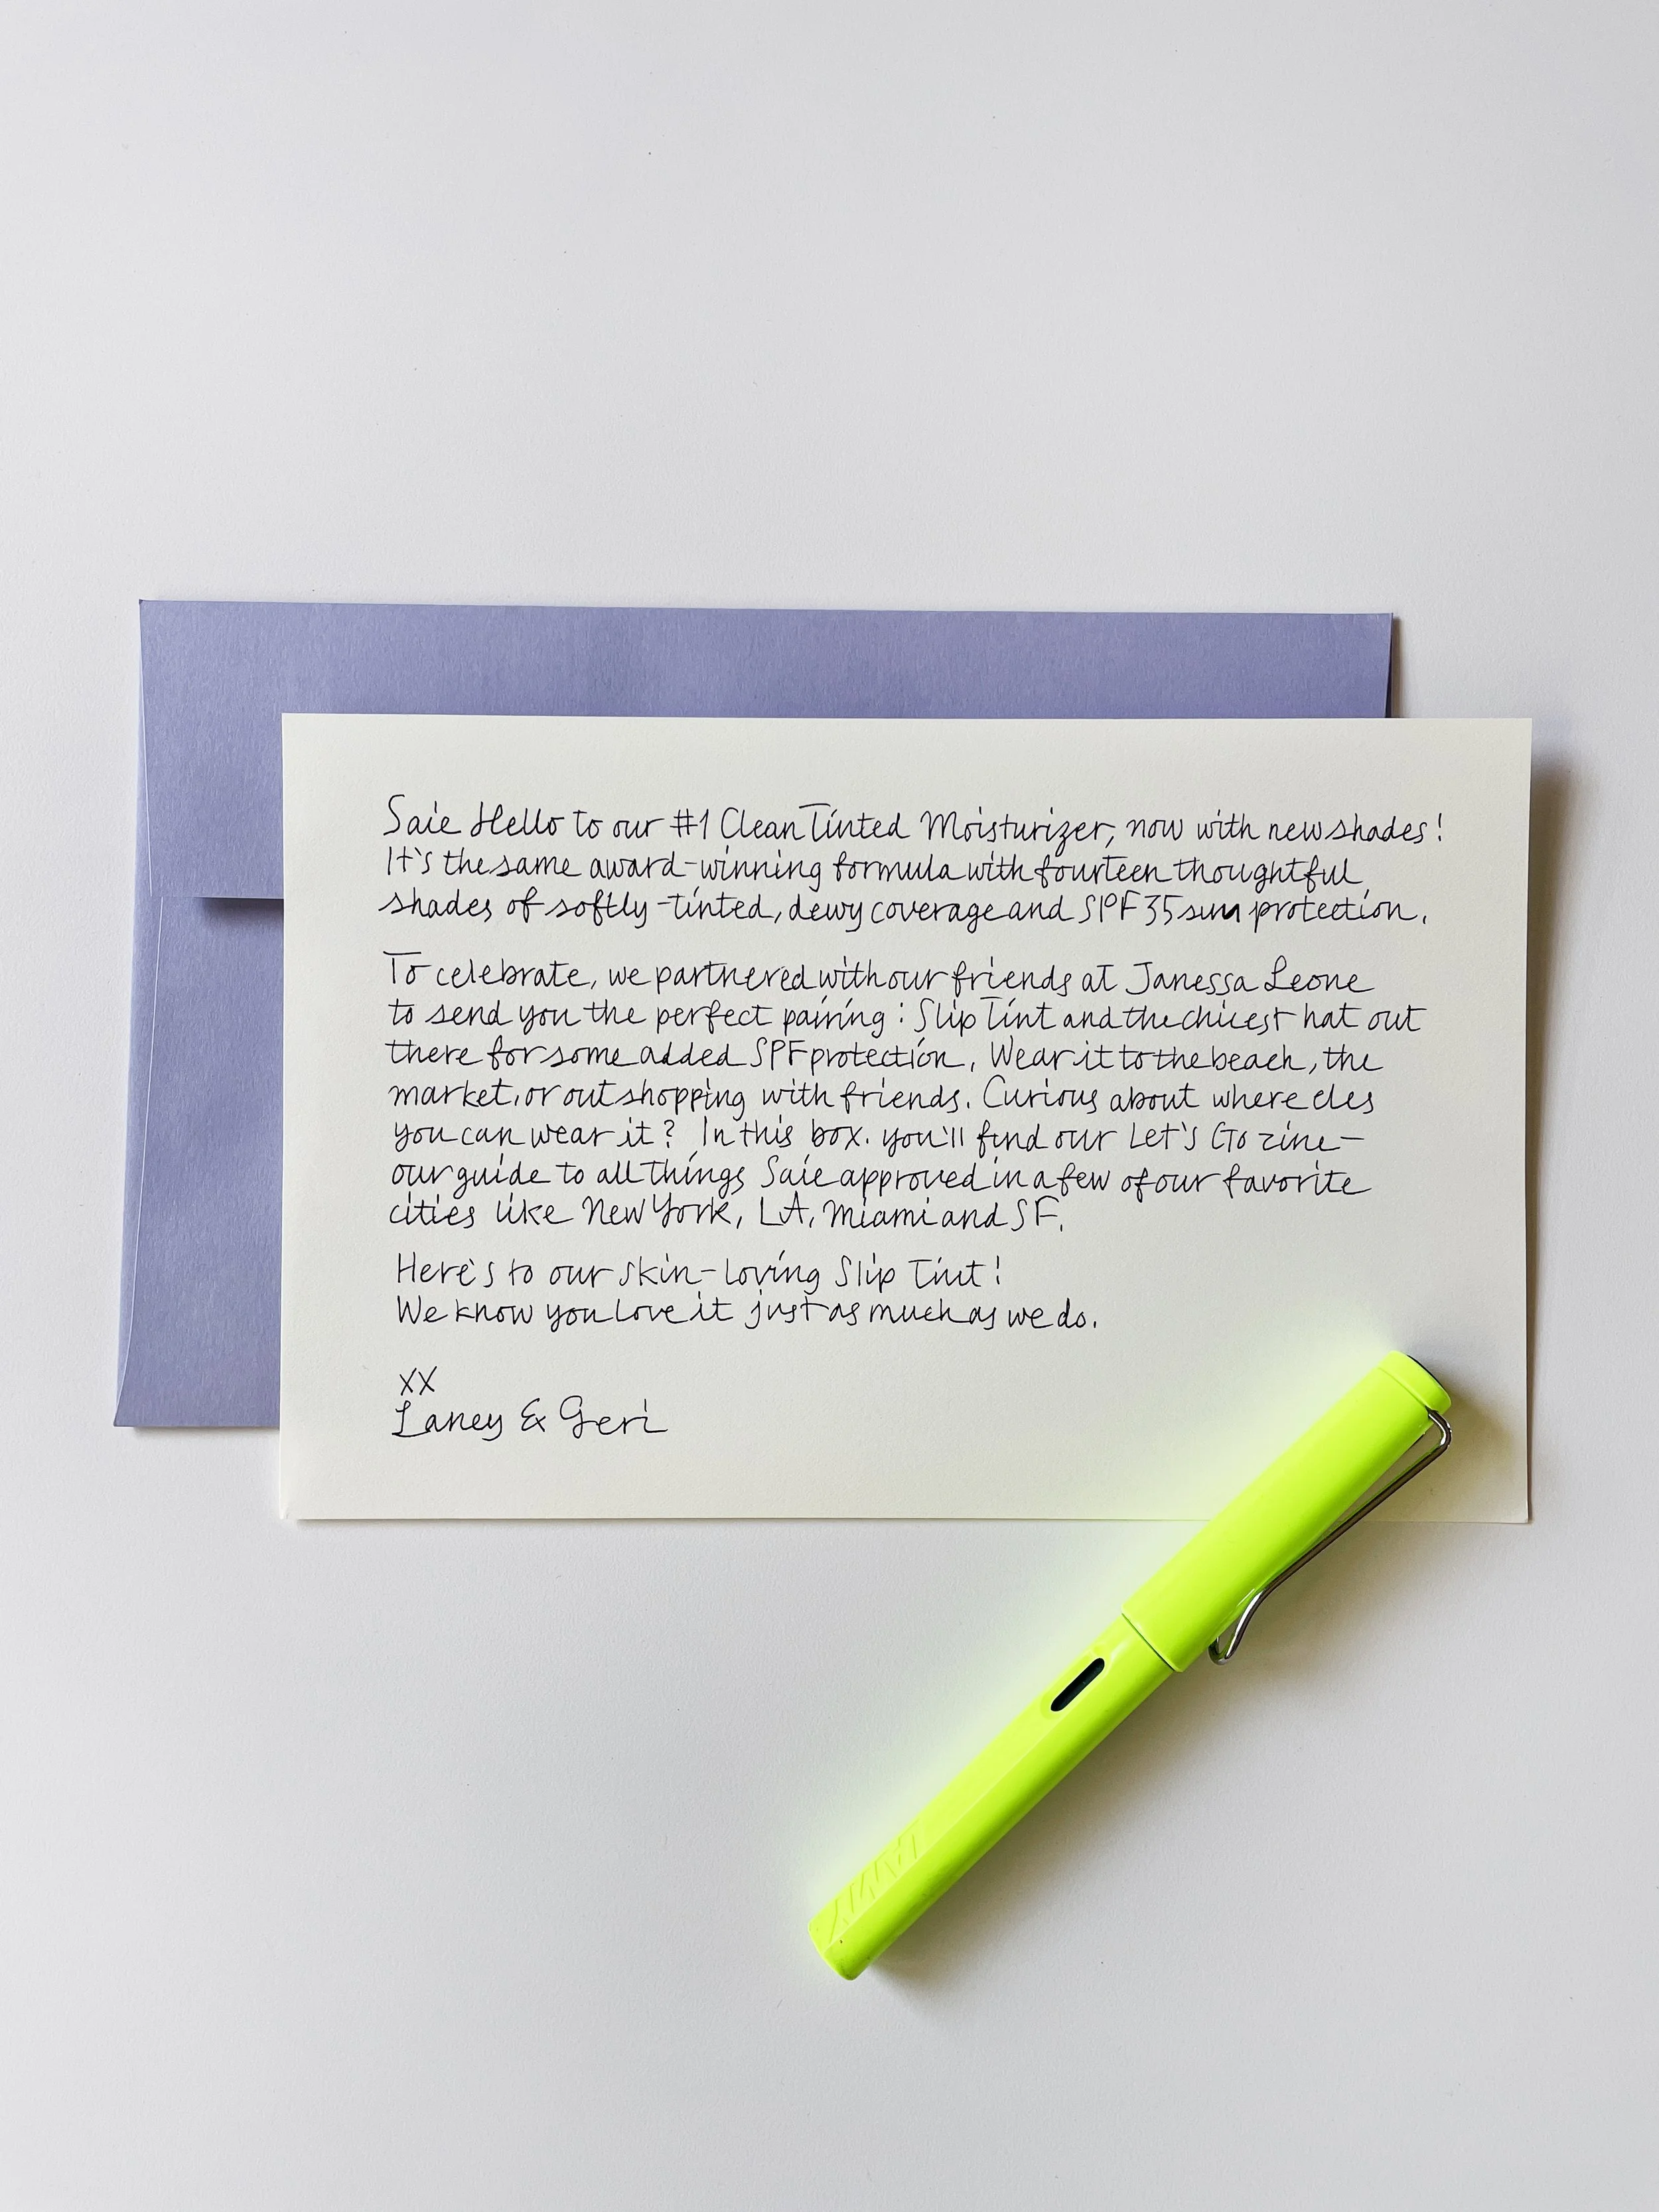 Saie Hello to our #1 Clean Tinted Moisturizer, now with new shades!
It's the same award-winning formula with fourteen thoughtful
shades of softly-tinted, dewy coverage and SPF 35 sun protection.
To celebrate, we partnered with our friends at Janessa Leone
to send you the perfect pairing: Slip Tint and the chicest hat out
there for some added SPF protection. Wear it to the beach, the
market, or out shopping with friends. Curious about where eles
you can wear it? In this box. you'll find our Let's Go zine—
our guide to all things Saie approved in a few of our favorite
cities like New York, LA, Miami and SF.
Here's to our skin-loving Slip Tint!
We know you love it just as much as we do.
XX
Laney & Geri
LAMY